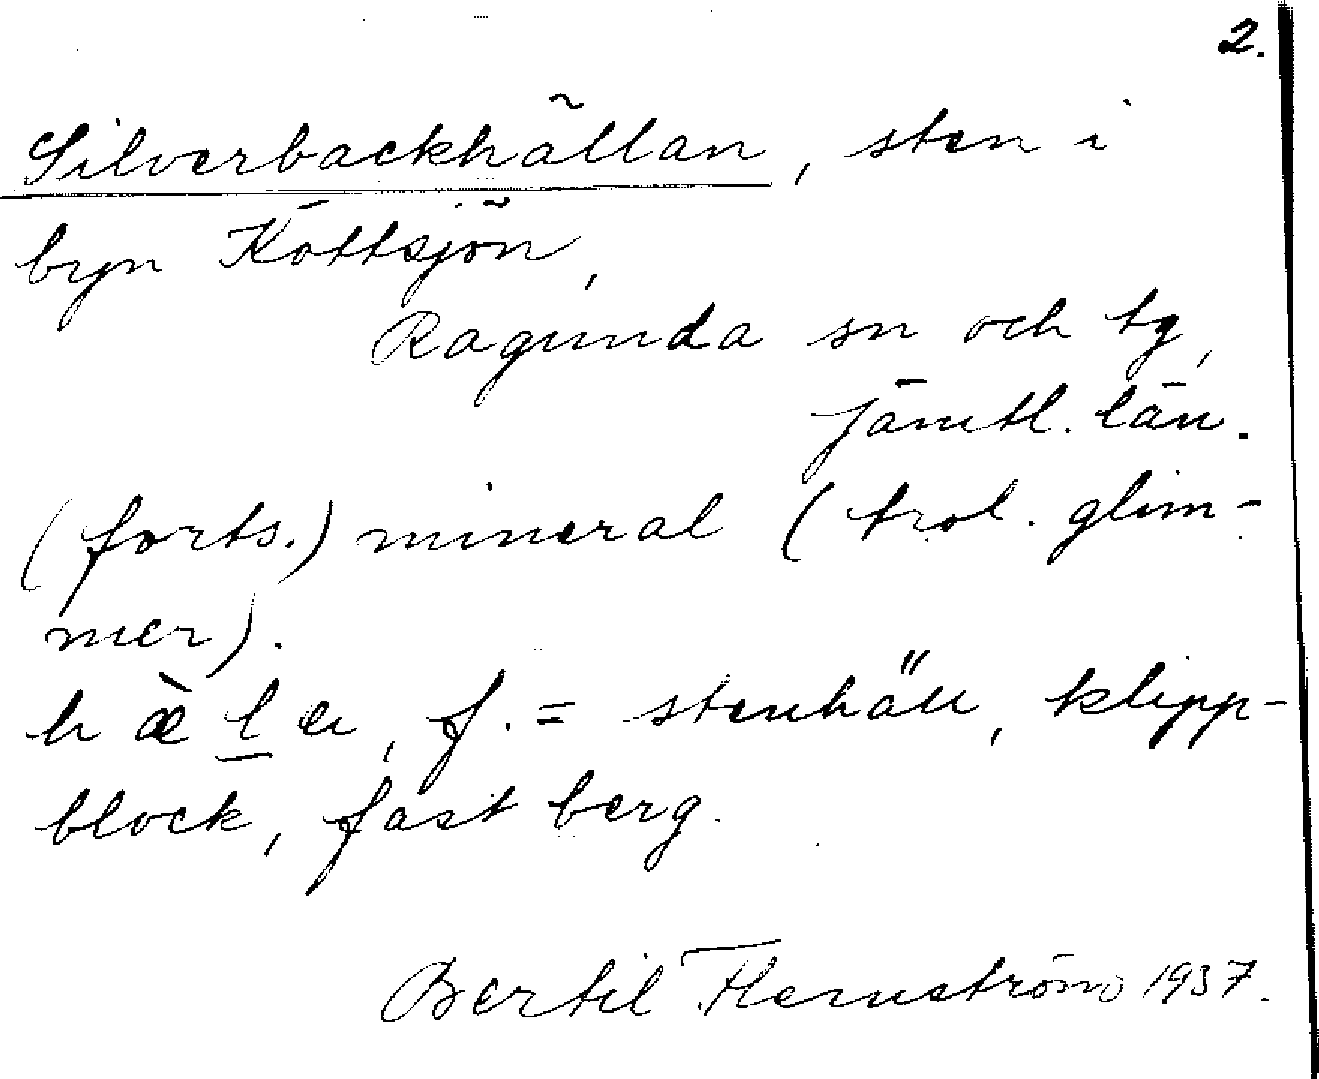 2.
Silverbackhällan, sten i
byn Köttsjön,
Ragunda sn och tg,
Jämtl. län.
(forts.) mineral (trol. glim-
mer).
f. = stenhäll, klipp-
block, fast berg.
Bertil Flemström 1937.